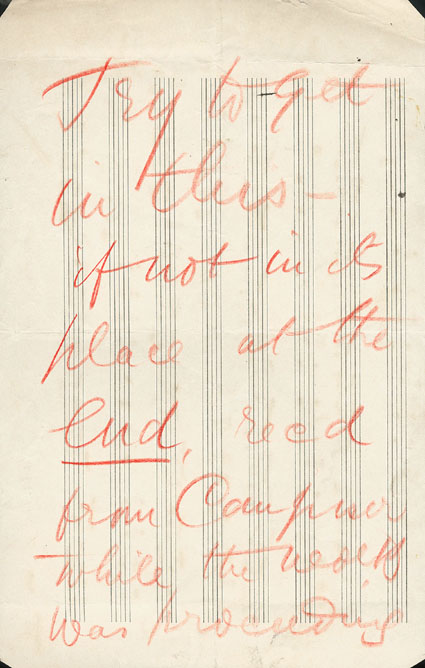 Try to get
in this -
if not in its
place at the
end, recd
from Composer
while the work
was proceeding